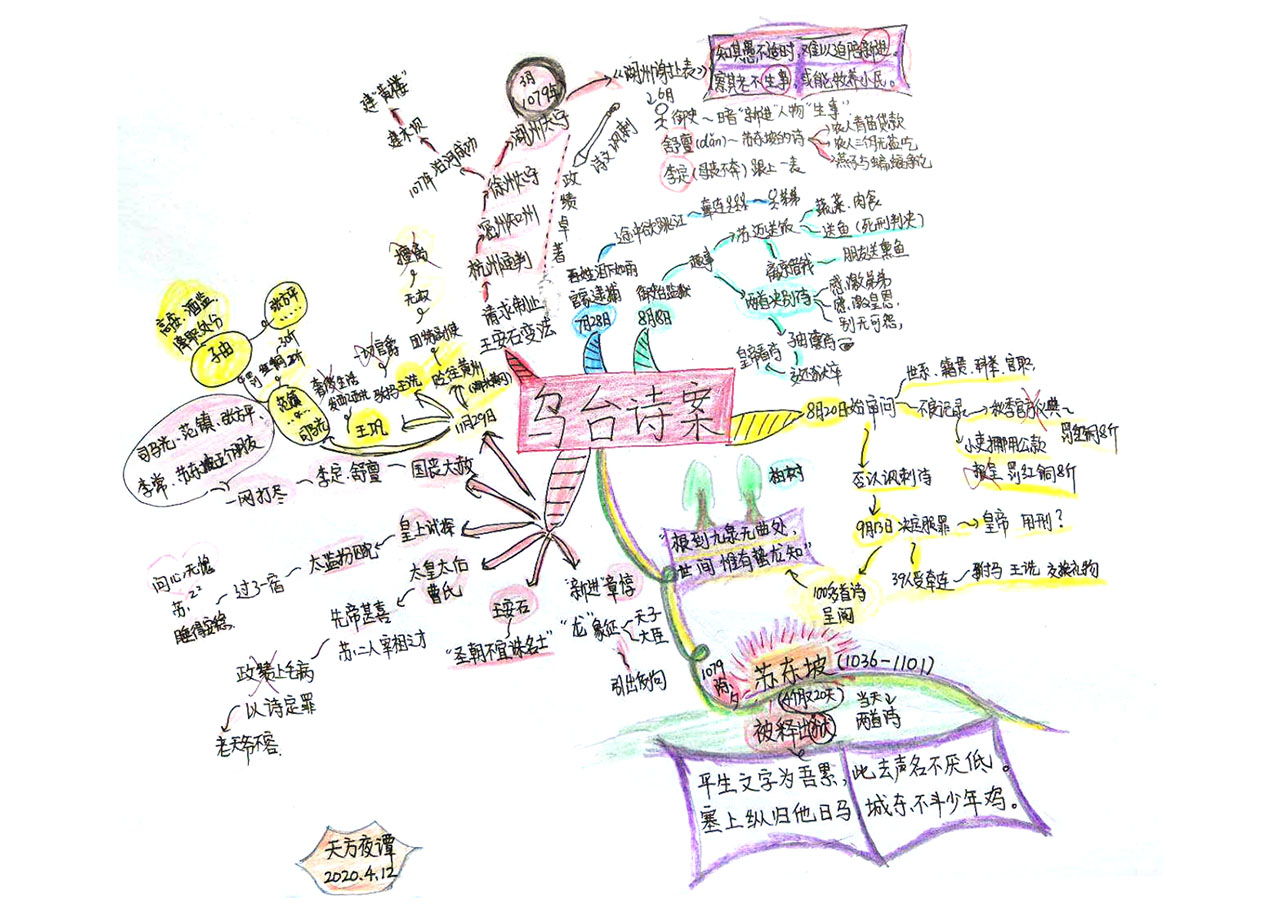 乌台诗案
请求制止
王安石变法
杭州通判
密州知州
徐州太守
湖州太守
政绩卓著
建大坝
建"黄楼"
3月
1079年
《湖州谢上表》
知其愚不适时,难以追陪新进。
察其老不生事,或能牧养小民。
6月
诗文讽刺
御史~暗"新进"人物"生事"
舒亶(dǎn)~苏东坡的诗
农人青苗贷款
农人三个月无盐吃
燕子与蝙蝠争吃
李定(母丧不奔)跟上一表
7月28日
官家逮捕
百姓泪下如雨
途中欲跳江
8月8日
御史台监狱
趣事
苏迈送饭
蔬菜、肉食
送鱼(死刑判决)
朋友送熏鱼
两首诀别诗
感激弟弟
感激皇恩,
别无可怨,
皇帝看诗
8月20日始审问
世系、籍贯、科举、官职,
不良记录
罚红铜8斤
小吏挪用公款
罚红铜8斤
否认讽刺诗
9月13日决定服罪
皇帝 用刑?
39人受牵连
驸马 王诜 交换礼物
100多首诗
呈阅
柏树
"根到九泉无曲处,
世间惟有蛰龙知"
1079
除夕
苏东坡(1036-1101)
(4个月又20天)
被释出狱
当天
两首诗
平生文字为吾累,
此去声名不厌低。
塞上纵归他日马
城东不斗少年鸡。
"新进"章惇
"龙"象征
天子
大臣
引出例句
王安石
"圣朝不宜诛名士"
曹氏
先帝甚喜
苏:二人宰相之才
以诗定罪
老天爷不容.
皇上试探
太监扮囚犯
过了一宿
问心无愧
睡得安稳.
国丧大赦
李定、舒亶
一网打尽
司马光、范镇、张方平、
李常、苏东坡五个朋友
11月29日
贬往黄州
团练副使
无权
擅离
驸马王诜
王巩
范镇
司马光
张方平
罚红铜20斤
30斤
子由
高安、酒监、
降职处分
天方夜谭
2020.4.12